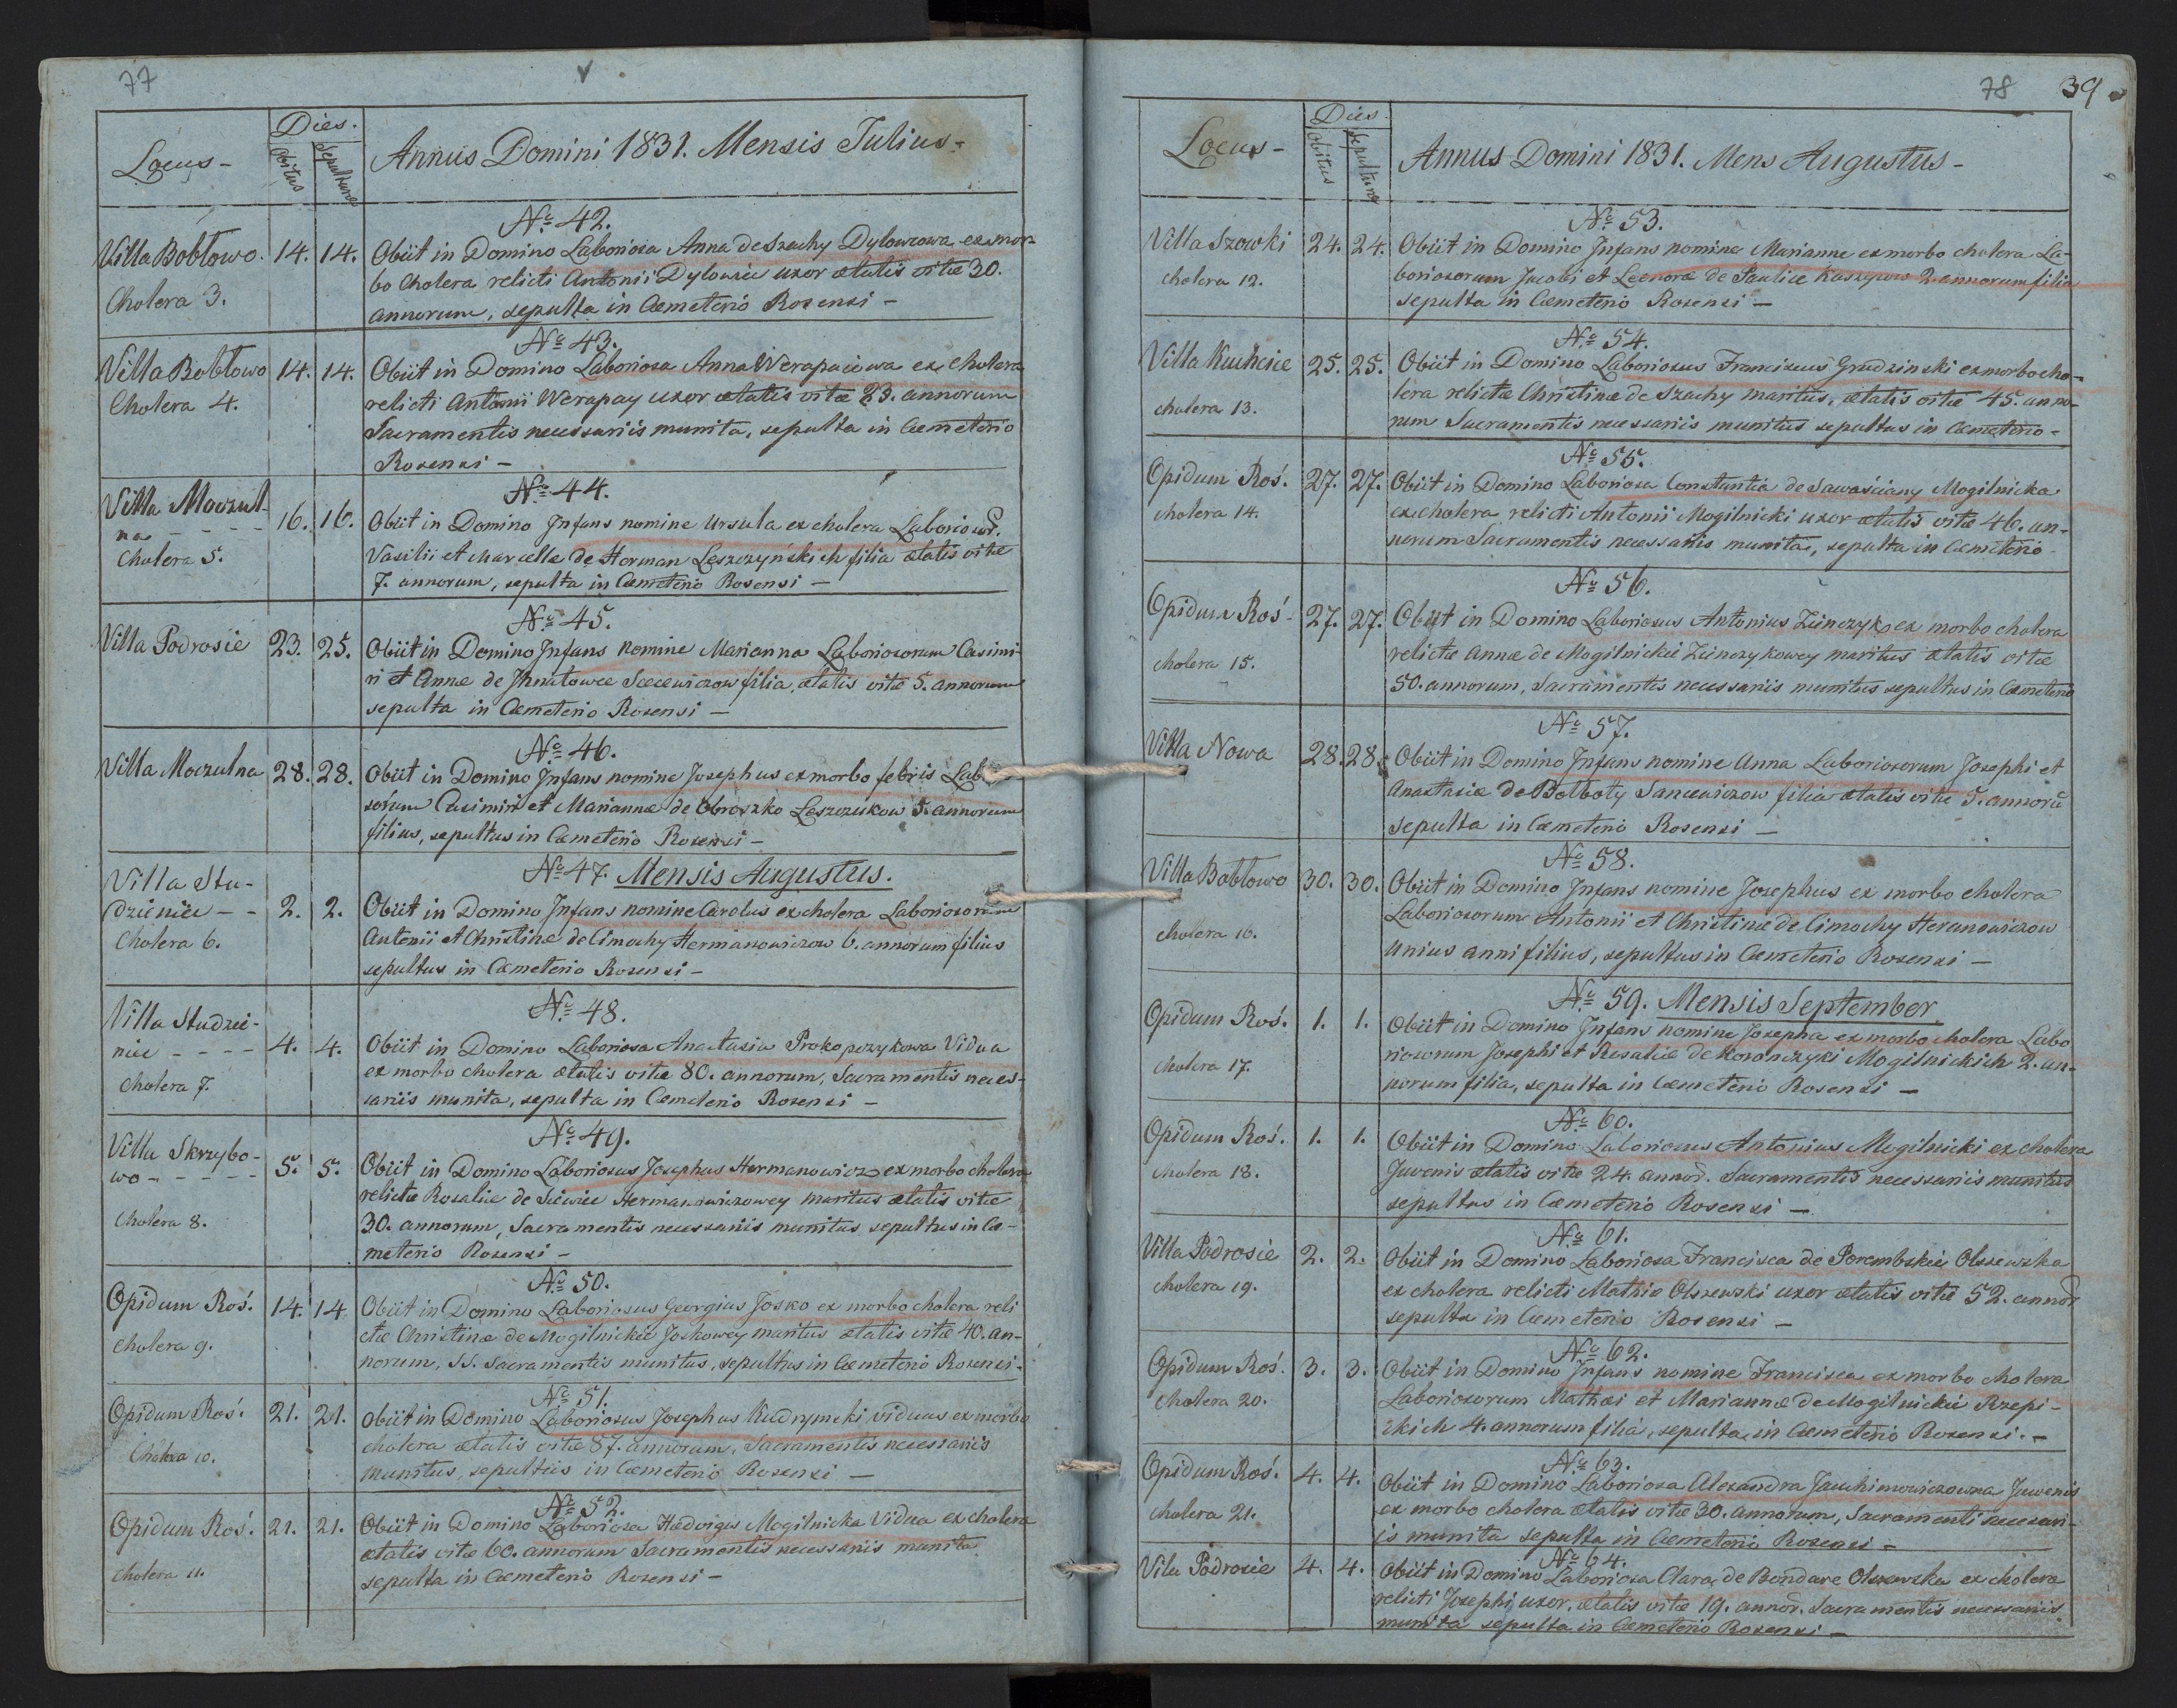 77
Locus -
Dies.
Obitus
Sepulturae
Annus Domini 1831. Mensis Julius -
Villa Bobłowo.
Cholera 3.
14. 14.
No 42.
Obiit in Domino Laboriosa Anna de Szachy Dylowcowa ex mor
bo Cholera relicti Antonii Dylowiec uxor ætatis vitæ 30.
annorum, sepulta in Cæmeterio Rosensi -
Villa Bobłowo
Cholera 4.
14. 14.
No 43.
Obiit in Domino Laboriosa Anna Werapaiowa ex Cholera
relicti Antonii Werapay uxor ætatis vitæ 23. annorum
Sacramentis necessariis munita, sepulta in Cæmeterio
Rosensi -
Villa Moczul-
na - - -
Cholera 5.
16. 16.
No 44.
Obiit in Domino Infans nomine Ursula ex cholera Laborior.
Vasilii et Marcellæ de Horman Leszczyńskich filia ætatis vitæ
7. annorum, sepulta in Cæmeterio Rosensi -
Villa Podrosie
23. 25.
No 45.
Obiit in Domino Infans nomine Marianna Laboriosorum Casimi-
ri et Annæ de Ihnatowce filia, ætatis vitæ 5. annorum
sepulta in Cæmeterio Rosensi -
Villa Moczulna
28. 28.
No 46.
Obiit in Domino Infans nomine Josephus ex morbo febris
sorum Casimiri et Mariannæ de Obroszko Leszczukow 5. annorum
filius, sepultus in Cæmeterio Rosensi -
Villa Stu-
dzieniec - -
Cholera 6.
2. 2.
No 47. Mensis Augustus.
Obiit in Domino Infans nomine Carolus ex cholera Laboriosorum
Antonii et Christinæ de Cimochy Hermanowiczow 6. annorum filius
sepultus in Cæmeterio Rosensi -
Villa Studzie-
niec - - - -
Cholera 7.
4. 4.
No 48.
Obiit in Domino Laboriosa Anastasia Prokopczykowa Vidua
ex morbo cholera ætatis vitæ 80. annorum, Sacramentis neces-
sariis munita, sepulta in Cæmeterio Rosensi -
Villa Skrzybo-
wo - - - - -
Cholera 8.
5. 5.
No 49.
Obiit in Domino Laboriosus Josephus Hermanowicz ex morbo cholera
relictæ Rosaliæ de Hermanowiczowey maritus ætatis vitæ
30. annorum, Sacramentis necessariis munitus sepultus in Cæ-
meterio Rosensi -
Opidum Roś.
Cholera 9.
14. 14
No 50.
Obiit in Domino Laboriosus Georgius Josko ex morbo cholera reli
ctæ Christinæ de Mogilnickie Joskowey maritus ætatis vitæ 40. an-
norum, SS. Sacramentis munitus, sepultus in Cæmeterio Rosensi -
Opidum Roś.
Cholera 10.
21. 21.
No 51.
Obiit in Domino Laboriosus Josephus viduus ex morbo
cholera ætatis vitæ 87. annorum, Sacramentis necessariis
munitus, sepultus in Cæmeterio Rosensi -
Opidum Roś.
cholera 11.
21. 21.
No 52.
Obiit in Domino Laboriosa Hedvigis Mogilnicka Vidua ex cholera
ætatis vitæ 60. annorum Sacramentis necessariis munita
sepulta in Cæmeterio Rosensi -
78 39
Locus -
Dies.
Obitus
Sepulturae
Annus Domini 1831. Mens Augustus -
Villa Szowki
cholera 12.
24. 24.
No 53.
Obiit in Domino Infans nomine Marianna ex morbo cholera La-
boriosorum Jacobi et Leonoræ de Paulice 2 annorum filia
sepulta in Cæmeterio Rosensi -
Villa
cholera 13.
25. 25.
No 54.
Obiit in Domino Laboriosus Franciscus Grudzinski ex morbo cho-
lera relictæ Christinæ de Szachy maritus, ætatis vitæ 45. anno-
rum Sacramentis necessariis munitus sepultus in Cæmeterio -
Opidum Roś.
cholera 14.
27. 27.
No 55.
Obiit in Domino Laboriosa Constantia de Sawaściany Mogilnicka
ex cholera relicti Antonii Mogilnicki uxor ætatis vitæ 46. an-
norum Sacramentis necessariis munita, sepulta in Cæmeterio -
Opidum Roś -
cholera 15.
27. 27.
No 56.
Obiit in Domino Laboriosus Antonius Zienczyk ex morbo cholera
relictæ Annæ de Mogilnickie Zienczykowey maritus ætatis vitæ
50. annorum, Sacramentis necessariis munitus sepultus in Cæmeterio
Villa Nowa
28. 28.
No 57.
Obiit in Domino Infans nomine Anna Laboriosorum Josephi et
Anastasiæ de Bołboty Sancewiczow filia ætatis vitæ 5. annorũ
sepulta in Cæmeterio Rosensi -
Villa Bobłowo
cholera 16.
30. 30.
No 58.
Obiit in Domino Infans nomine Josephus ex morbo cholera
Laboriosorum Antonii et Christinæ de Cimochy Hermanowiczow
unius anni filius, sepultus in Cæmeterio Rosensi -
Opidum Roś.
cholera 17.
1. 1.
No 59. Mensis September
Obiit in Domino Infans nomine Josepha ex morbo cholera Labo
riosorum Josephi et Rosaliæ de Mogilnickich 2. an-
norum filia, sepulta in Cæmeterio Rosensi -
Opidum Roś.
cholera 18.
1. 1.
No 60.
Obiit in Domino Laboriosus Antonius Mogilnicki ex cholera
Juvenis ætatis vitæ 24. annor. Sacramentis necessariis munitus
sepultus in Cæmeterio Rosensi -
Villa Podrosie
cholera 19.
2. 2.
No 61.
Obiit in Domino Laboriosa Francisca de Porembskie Olszewska
ex cholera relicti Mathiæ Olszewski uxor ætatis vitæ 52. annor
sepulta in Cæmeterio Rosensi -
Opidum Roś.
cholera 20.
3. 3.
No 62.
Obiit in Domino Infans nomine Francisca ex morbo cholera
Laboriosorum Mathæi et Mariannæ de Mogilnickie Rzepi-
ckich 4. annorum filia, sepulta in Cæmeterio Rosensi. -
Opidum Roś.
cholera 21.
4. 4.
No 63.
Obiit in Domino Laboriosa Alexandra Jachimowiczowna Juvenis
ex morbo cholera ætatis vitæ 30. annorum, Sacramenti necessari-
is munita sepulta in Cæmeterio Rosensi -
Villa Podrosie
4. 4.
No 64.
Obiit in Domino Laboriosa Clara de Bondare Olszewska ex cholera
relicti Josephi uxor, ætatis vitæ 19. annor. Sacramentis necessariis
munita sepulta in Cæmeterio Rosensi -